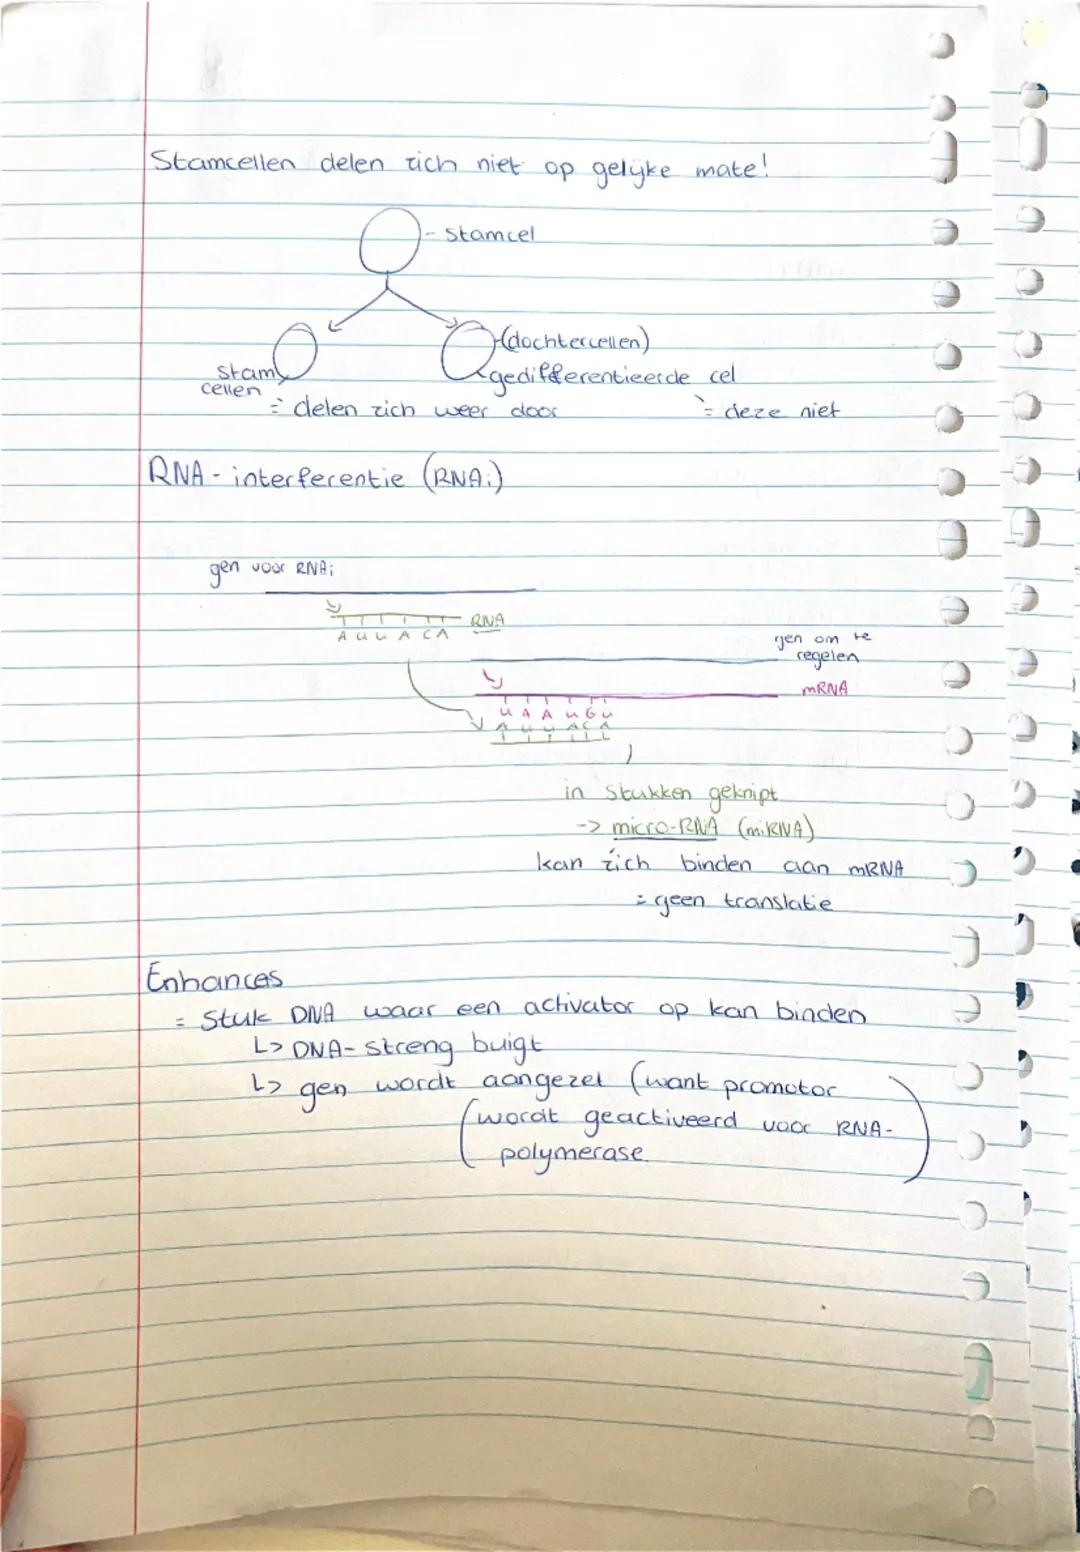 Stamcellen delen zich niet op gelijke mate!
- Stamcel
(dochtercellen)
Stam
cellen
gedifferentieerde cel
= delen zich weer door
= deze niet
RNA-interferentie (RNAi)
gen voor RNAi
RNA
A U U A C A
gen om te
regelen
mRNA
U A A U G U
A U U A C A
in stukken geknipt
-> micro-RNA (miRNA)
kan zich binden aan mRNA
= geen translatie
Enhances
= Stuk DNA waar een activator op kan binden
L> DNA-streng buigt
L> gen wordt aangezet (want promotor
(wordt geactiveerd voor RNA-
polymerase)